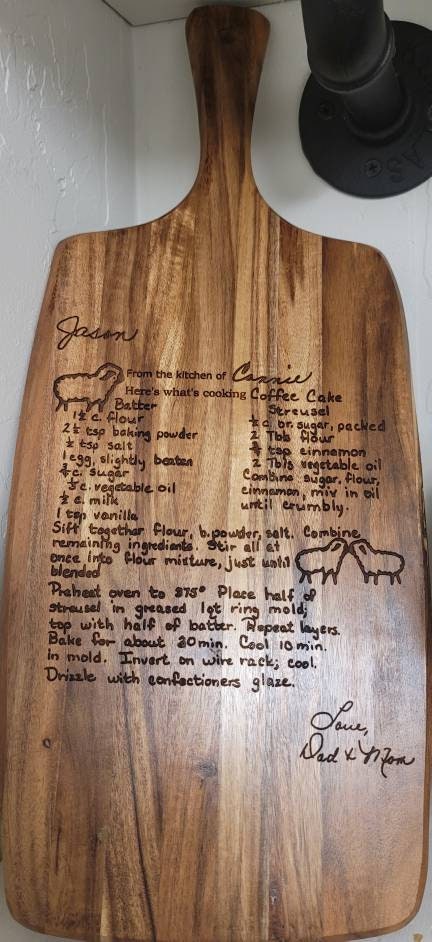 Jason
From the kitchen of Connie
Here's what's cooking Coffee Cake
Batter
1½ c. flour
2½ tsp baking powder
½ tsp salt
1 egg, slightly beaten
¾ c. sugar
⅓ c. vegetable oil
½ c. milk
1 tsp vanilla
Streusel
½ c. br. sugar, packed
2 Tbls flour
tsp cinnamon
2 Tbls vegetable oil
Combine sugar, flour,
cinnamon, mix in oil
until crumbly.
Sift together flour, b.powder, salt. Combine
remaining ingredients. Stir all at
once into flour mixture, just until
blended
Preheat oven to 375° Place half of
streusel in greased 1qt ring mold;
top with half of batter. Repeat layers.
Bake for about 30 min. Cool 10 min.
in mold. Invert on wire rack; cool.
Drizzle with confectioners glaze.
Love,
Dad & Mom